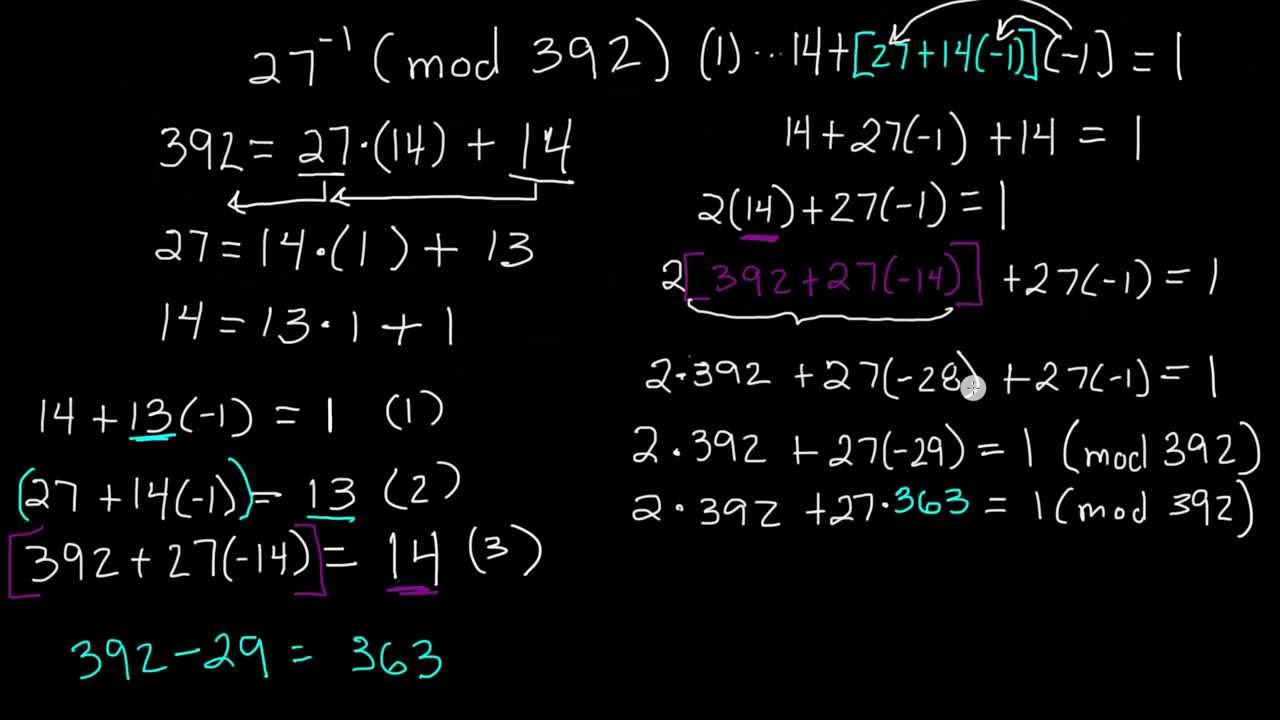 27⁻¹ (mod 392)
392 = 27·(14) + 14
27 = 14·(1) + 13
14 = 13·1 + 1
14 + 13(-1) = 1 (1)
(27 + 14(-1)) = 13 (2)
[392 + 27(-14)] = 14 (3)
392 - 29 = 363
(1) ... 14 + [27 + 14(-1)](-1)] = 1
14 + 27(-1) + 14 = 1
2(14) + 27(-1) = 1
2[392 + 27(-14)] + 27(-1) = 1
2·392 + 27(-28) + 27(-1) = 1
2·392 + 27(-29) = 1 (mod 392)
2·392 + 27·363 = 1 (mod 392)